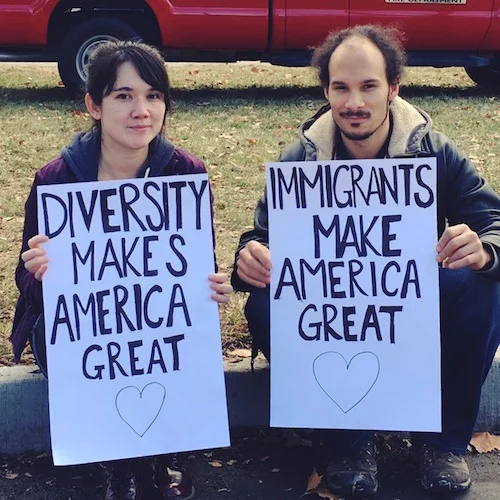 FIRE DEPARTMENT
DIVERSITY
MAKES
AMERICA
GREAT
IMMIGRANTS
MAKE
AMERICA
GREAT